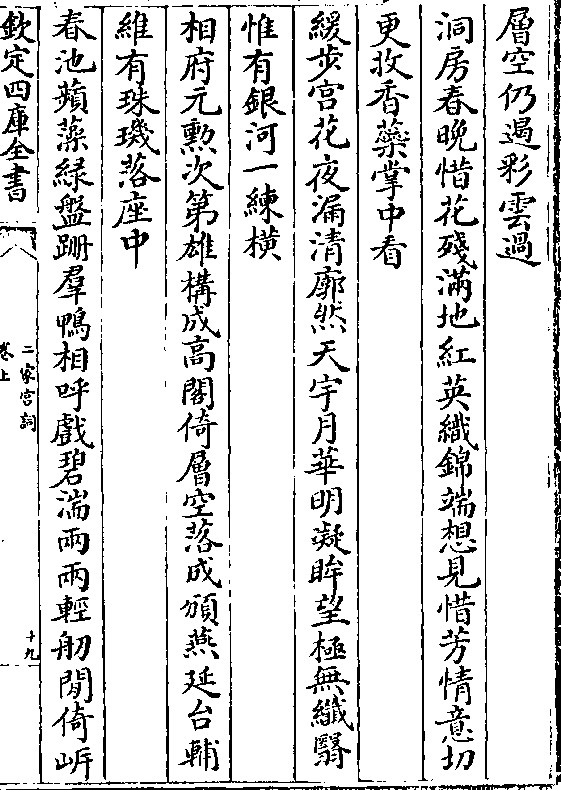 層空仍遏彩雲過
洞房春晚惜花殘滿地紅英織錦端想見惜芳情意切
更收香藥掌中看
緩步宮花夜漏清廓然天宇月華明凝眸望極無纖翳
惟有銀河一練橫
相府元勲次第雄構成高閣倚層空落成頒燕延台輔
維有珠璣落座中
春池蘋藻緑盤跚羣鴨相呼戲碧湍兩兩輕舠閒倚岍
欽定四庫全書
二家宮詞
卷上
十九